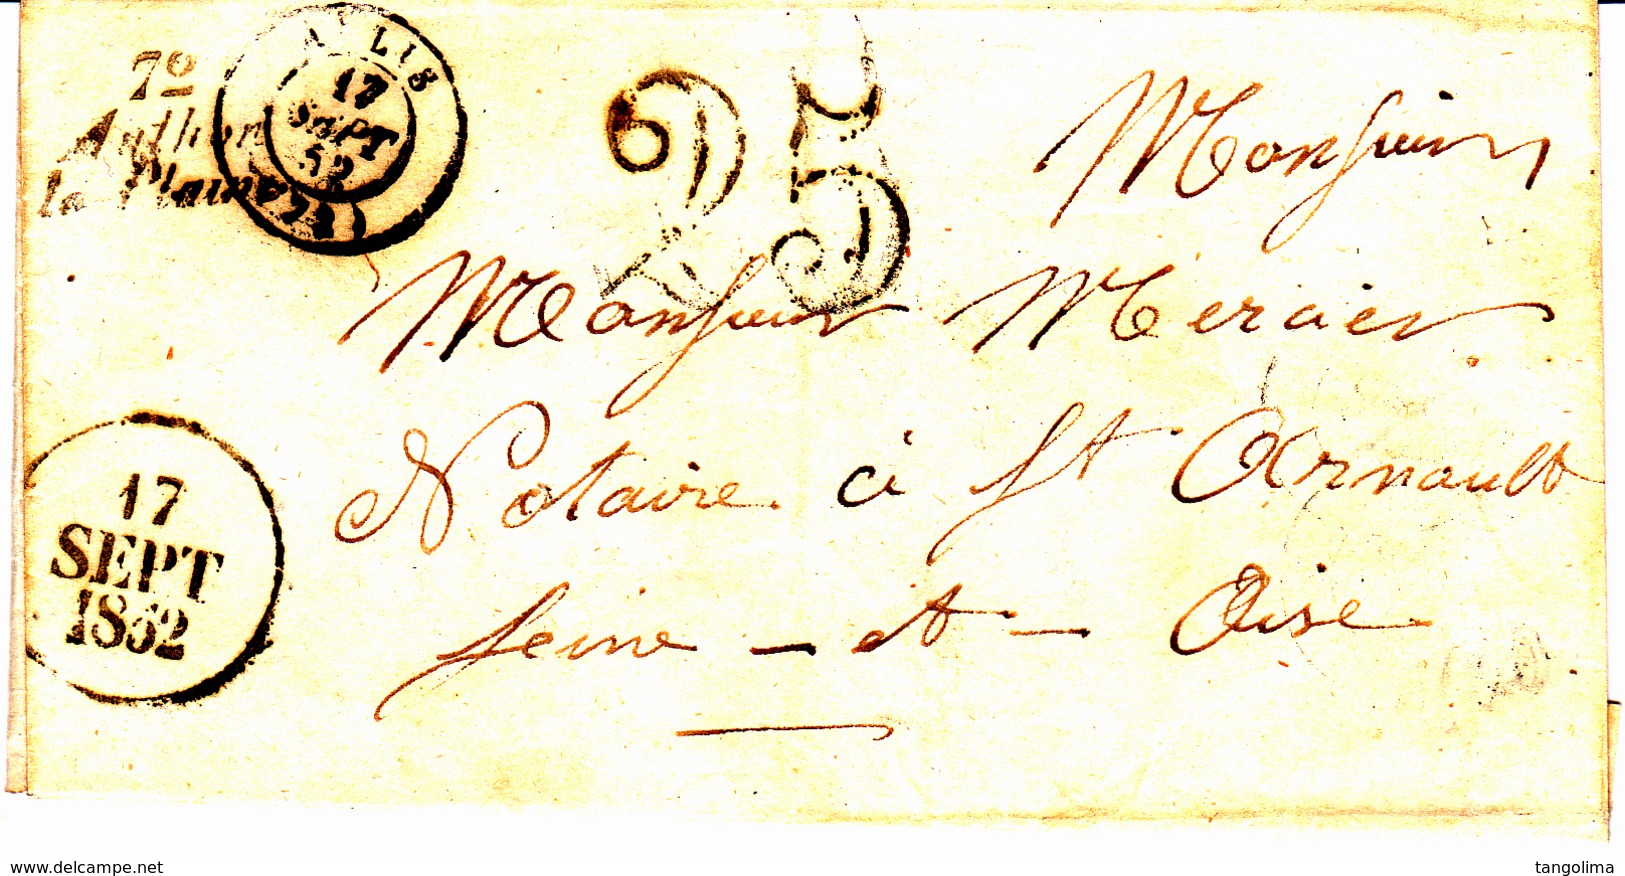 7e
Authon
la Plaine
17
SEPT
52
25
Monsieur
Monsieur Mercier
Notaire à St Arnault
Seine - et - Oise
17
SEPT
1852
www.delcampe.net
tangolima